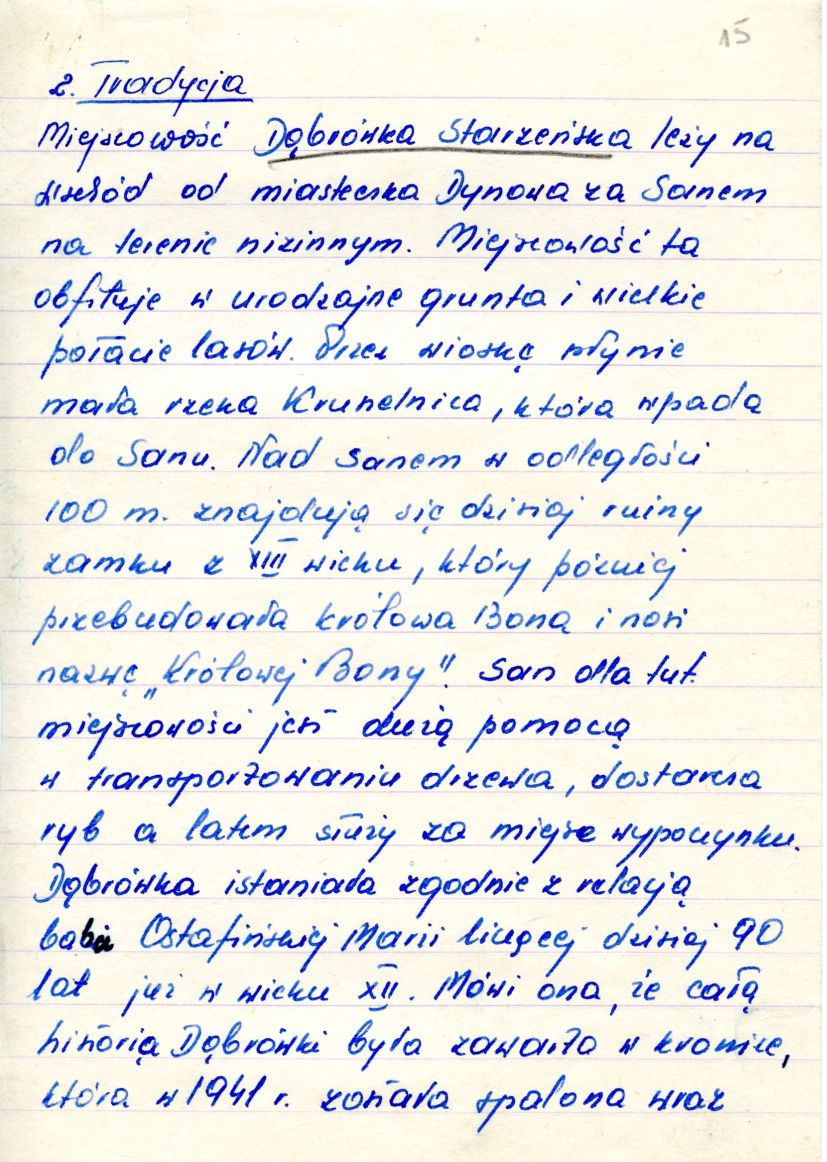 15
2. Tradycja
Miejscowość Dąbrówka Starzeńska leży na
wschód od miasteczka Dynowa za Sanem
na terenie nizinnym. Miejscowość ta
obfituje w urodzajne grunta i wielkie
połacie lasów. Przez wioskę płynie
mała rzeka Krunelnica, która wpada
do Sanu. Nad Sanem w odległości
100 m. znajdują się dzisiaj ruiny
zamku z XIII wieku, który później
przebudowała królowa Boną i nosi
nazwę „Królowej Bony". San dla tut.
miejscowości jest dużą pomocą
w transportowaniu drzewa, dostarcza
ryb a latem służy za miejsce wypoczynku.
Dąbrówka istaniała zgodnie z relacją
babci Ostafińskiej Marii liczącej dzisiaj 90
lat już w wieku XII. Mówi ona, że całą
historią Dąbrówki była zawarta w kronice,
która w 1941 r. została spalona wraz